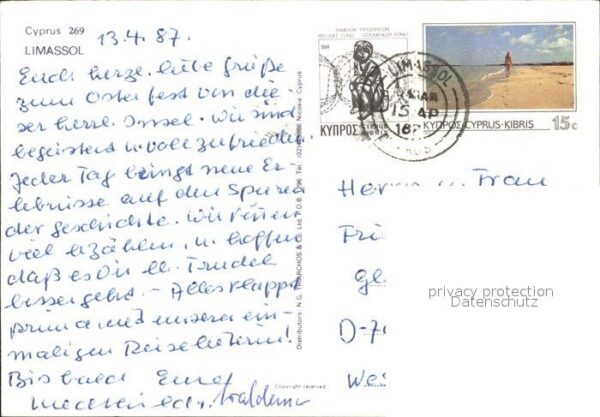 Cyprus 269
LIMASSOL
13.4.87.
Euch herzl. liebe Grüße
zum Osterfest von die-
ser herrl. Insel. Wir sind
begeistert u. voll zufrieden.
Jeder Tag bringt neue Er-
lebnisse auf den Spuren
der Geschichte. Wir können
viel erzählen, u. hoffen
daß es Dir lb. Trudel
besser geht. – Alles klappt
prima mit unserer ein-
maligen Reiseleiterin!
Bis bald Eure
Waldemar
Distributors: N.G. & Co. Ltd. P.O.B. Tel. Nicosia Cyprus
Copyright reserved
ΤΑΜΕΙΟΝ ΠΡΟΣΦΥΓΩΝ
REFUGEE FUND GÖÇMENLER FONU
1984
ΚΥΠΡΟΣ CYPRUS KIBRIS
LIMASSOL
15 AP
ΚΥΠΡΟΣ·CYPRUS·KIBRIS 15c
Herrn u. Frau
Fri
D-7
We
privacy protection
Datenschutz